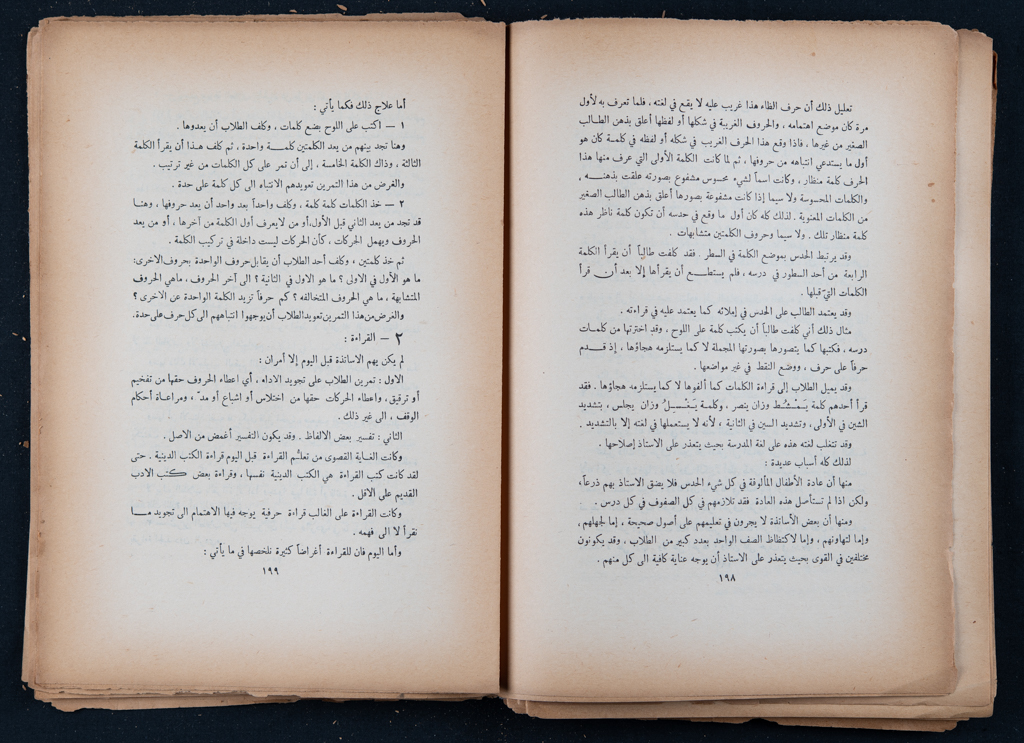 تعليل ذلك أن حرف الظاء هذا غريب عليه لا يقع في لغته ، فلما تعرف به لأول
مرة كان موضع اهتمامه ، والحروف الغريبة في شكلها أو لفظها أعلق بذهن الطالب
الصغير من غيرها ، فاذا وقع هذا الحرف الغريب في شكله أو لفظه في كلمة كان هو
أول ما يستدعي انتباهه من حروفها ، ثم لما كانت الكلمة الأولى التي عرف منها هذا
الحرف كلمة منظار ، وكانت اسماً لشيء محسوس مشفوع بصورته علقت بذهنه ,
والكلمات المحسوسة ولا سيما إذا كانت مشفوعة بصورها أعلق بذهن الطالب الصغير
من الكلمات المعنوية . لذلك كله كان أول ما وقع في حدسه أن تكون كلمة ناظر هذه
كلمة منظار تلك . ولا سيما وحروف الكلمتين متشابهات .
وقد يرتبط الحدس بموضع الكلمة في السطر . فقد كلفت طالباً أن يقرأ الكلمة
الرابعة من أحد السطور في درسه ، فلم يستطع أن يقرأها إلا بعد أن قرأ
الكلمات التي قبلها .
وقد يعتمد الطالب على الحدس في إملائه كما يعتمد عليه في قراءته .
مثال ذلك أني كلفت طالباً أن يكتب كلمة على اللوح ، وقد اخترتها من كلمات
درسه ، فكتبها كما يتصورها بصورتها المجملة لا كما يستلزمه هجاؤها ، إذ قدم
حرفاً على حرف ، ووضع النقط في غير مواضعها .
وقد يميل الطلاب إلى قراءة الكلمات كما ألفوها لا كما يستلزمه هجاؤها . فقد
قرأ أحدهم كلمة يَمْشُط وزان ينصر ، وكلمة يَغْسِلُ وزان يجلس ، بتشديد
الشين في الأولى ، وتشديد السين في الثانية ، لأنه لا يستعملها في لغته إلا بالتشديد .
وقد تتغلب لغته هذه على لغة المدرسة بحيث يتعذر على الاستاذ إصلاحها .
لذلك كله أسباب عديدة :
منها أن عادة الأطفال المألوفة في كل شيء الحدس فلا يضق الاستاذ بهم ذرعاً ،
ولكن اذا لم تستأصل هذه العادة فقد تلازمهم في كل الصفوف في كل درس .
ومنها أن بعض الأساتذة لا يجرون في تعليمهم على أصول صحيحة ، إما لجهلهم ,
وإما لتهاونهم ، وإما لاكتظاظ الصف الواحد بعدد كبير من الطلاب ، وقد يكونون
مختلفين في القوى بحيث يتعذر على الاستاذ أن يوجه عناية كافية الى كل منهم .
١٩٨
أما علاج ذلك فكما يأتي :
١ — اكتب على اللوح بضع كلمات ، وكلف الطلاب أن يعدوها .
وهنا تجد بينهم من يعد الكلمتين كلمة واحدة ، ثم كلف هذا أن يقرأ الكلمة
الثالثة ، وذاك الكلمة الخامسة ، إلى أن تمر على كل الكلمات من غير ترتيب .
والغرض من هذا التمرين تعويدهم الانتباه الى كل كلمة على حدة .
٢ — خذ الكلمات كلمة كلمة ، وكلف واحداً بعد واحد أن يعد حروفها ، وهنا
قد تجد من يعد الثاني قبل الأول ، أو من لا يعرف أول الكلمة من آخرها ، أو من يعد
الحروف ويهمل الحركات ، كأن الحركات ليست داخلة في تركيب الكلمة .
ثم خذ كلمتين ، وكلف أحد الطلاب أن يقابل حروف الواحدة بحروف الاخرى :
ما هو الأول في الاولى ؟ ما هو الاول في الثانية ؟ الى آخر الحروف ، ماهي الحروف
المتشابهة ، ما هي الحروف المتخالفه ؟ كم حرفاً تزيد الكلمة الواحدة عن الاخرى ؟
والغرض من هذا التمرين تعويد الطلاب أن يوجهوا انتباههم الى كل حرف على حدة.
٢ — القراءة :
لم يكن يهم الاساتذة قبل اليوم إلا أمران :
الاول : تمرين الطلاب على تجويد الاداء . أي اعطاء الحروف حقها من تفخيم
أو ترقيق ، واعطاء الحركات حقها من اختلاس أو اشباع أو مدّ ، ومراعاة أحكام
الوقف ، الى غير ذلك .
الثاني : تفسير بعض الالفاظ . وقد يكون التفسير أغمض من الاصل .
وكانت الغاية القصوى من تعلّم القراءة قبل اليوم قراءة الكتب الدينية . حتى
لقد كانت كتب القراءة هي الكتب الدينية نفسها ، وقراءة بعض كتب الادب
القديم على الاقل .
وكانت القراءة على الغالب قراءة حرفية يوجه فيها الاهتمام الى تجويد ما
نقرأ لا الى فهمه .
وأما اليوم فان للقراءة أغراضاً كثيرة نلخصها في ما يأتي :
١٩٩